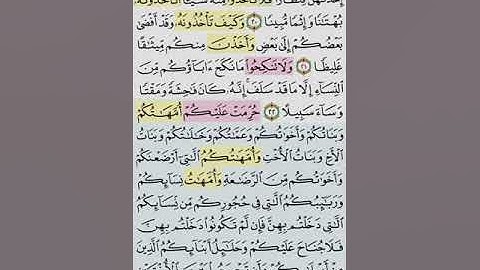 بُهْتَٰنًا وَإِثْمًا مُّبِينًا ٢٠ وَكَيْفَ تَأْخُذُونَهُۥ وَقَدْ أَفْضَىٰ
بَعْضُكُمْ إِلَىٰ بَعْضٍ وَأَخَذْنَ مِنكُم مِّيثَٰقًا
غَلِيظًا ٢١ وَلَا تَنكِحُوا۟ مَا نَكَحَ ءَابَآؤُكُم مِّنَ
ٱلنِّسَآءِ إِلَّا مَا قَدْ سَلَفَ إِنَّهُۥ كَانَ فَٰحِشَةً وَمَقْتًا
وَسَآءَ سَبِيلًا ٢٢ حُرِّمَتْ عَلَيْكُمْ أُمَّهَٰتُكُمْ
وَبَنَاتُكُمْ وَأَخَوَٰتُكُمْ وَعَمَّٰتُكُمْ وَخَٰلَٰتُكُمْ وَبَنَاتُ
ٱلْأَخِ وَبَنَاتُ ٱلْأُخْتِ وَأُمَّهَٰتُكُمُ ٱلَّٰتِىٓ أَرْضَعْنَكُمْ
وَأَخَوَٰتُكُم مِّنَ ٱلرَّضَٰعَةِ وَأُمَّهَٰتُ نِسَآئِكُمْ
وَرَبَٰٓئِبُكُمُ ٱلَّٰتِى فِى حُجُورِكُم مِّن نِّسَآئِكُمُ
ٱلَّٰتِى دَخَلْتُم بِهِنَّ فَإِن لَّمْ تَكُونُوا۟ دَخَلْتُم بِهِنَّ
فَلَا جُنَاحَ عَلَيْكُمْ وَحَلَٰٓئِلُ أَبْنَآئِكُمُ ٱلَّذِينَ